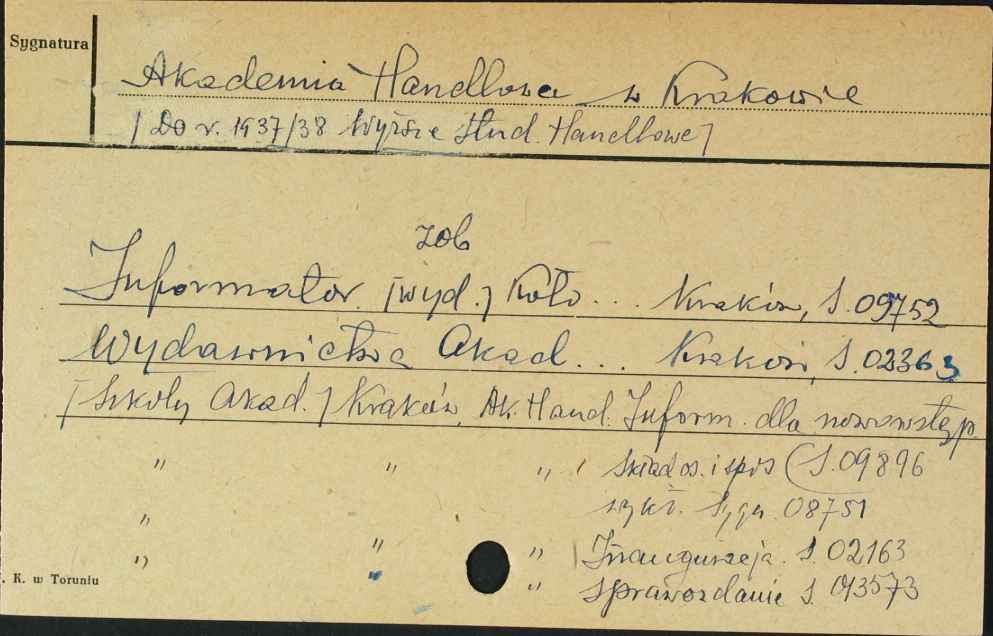 Sygnatura
Akademia Handlowa w Krakowie
[Do r. 1937/38 Wyższe Stud. Handlowe]
zob
Informator [wyd.] Koło... Kraków, S.09752
Wydawnictwa Akad... Kraków, S.02363
[Szkoły Akad.] Kraków, Ak. Hand. Inform. dla nowowstęp.
" " " Skład os. i spis (S.09896
wykł. Sygn. 08751
"
" " " Inauguracja. S.02163
" " Sprawozdanie S.
. K. w Toruniu